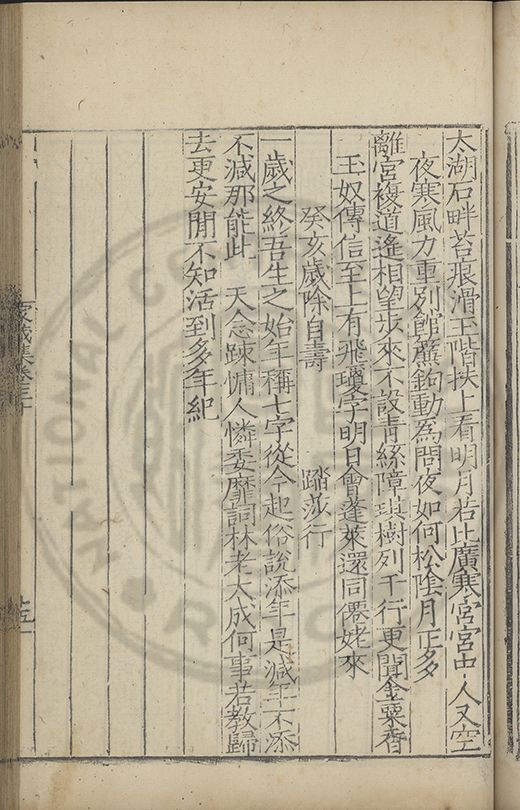 太湖石畔苔痕滑玉階扶上看明月若比廣寒宮宮中人又空
夜寒風力重列館簾鉤動為問夜如何松陰月正多
離宮複道遙相望步來不設青絲障琪樹列千行更聞金粟香
玉奴傳信至上有飛瓊字明日會蓬萊還同僊姥來
癸亥歲除自壽 踏莎行
一歲之終吾生之始年稱七字從今起俗說添年是減年不添
不減那能此 天念踈慵人憐委靡詞林老大成何事若教歸
去更安閒不知活到多年紀